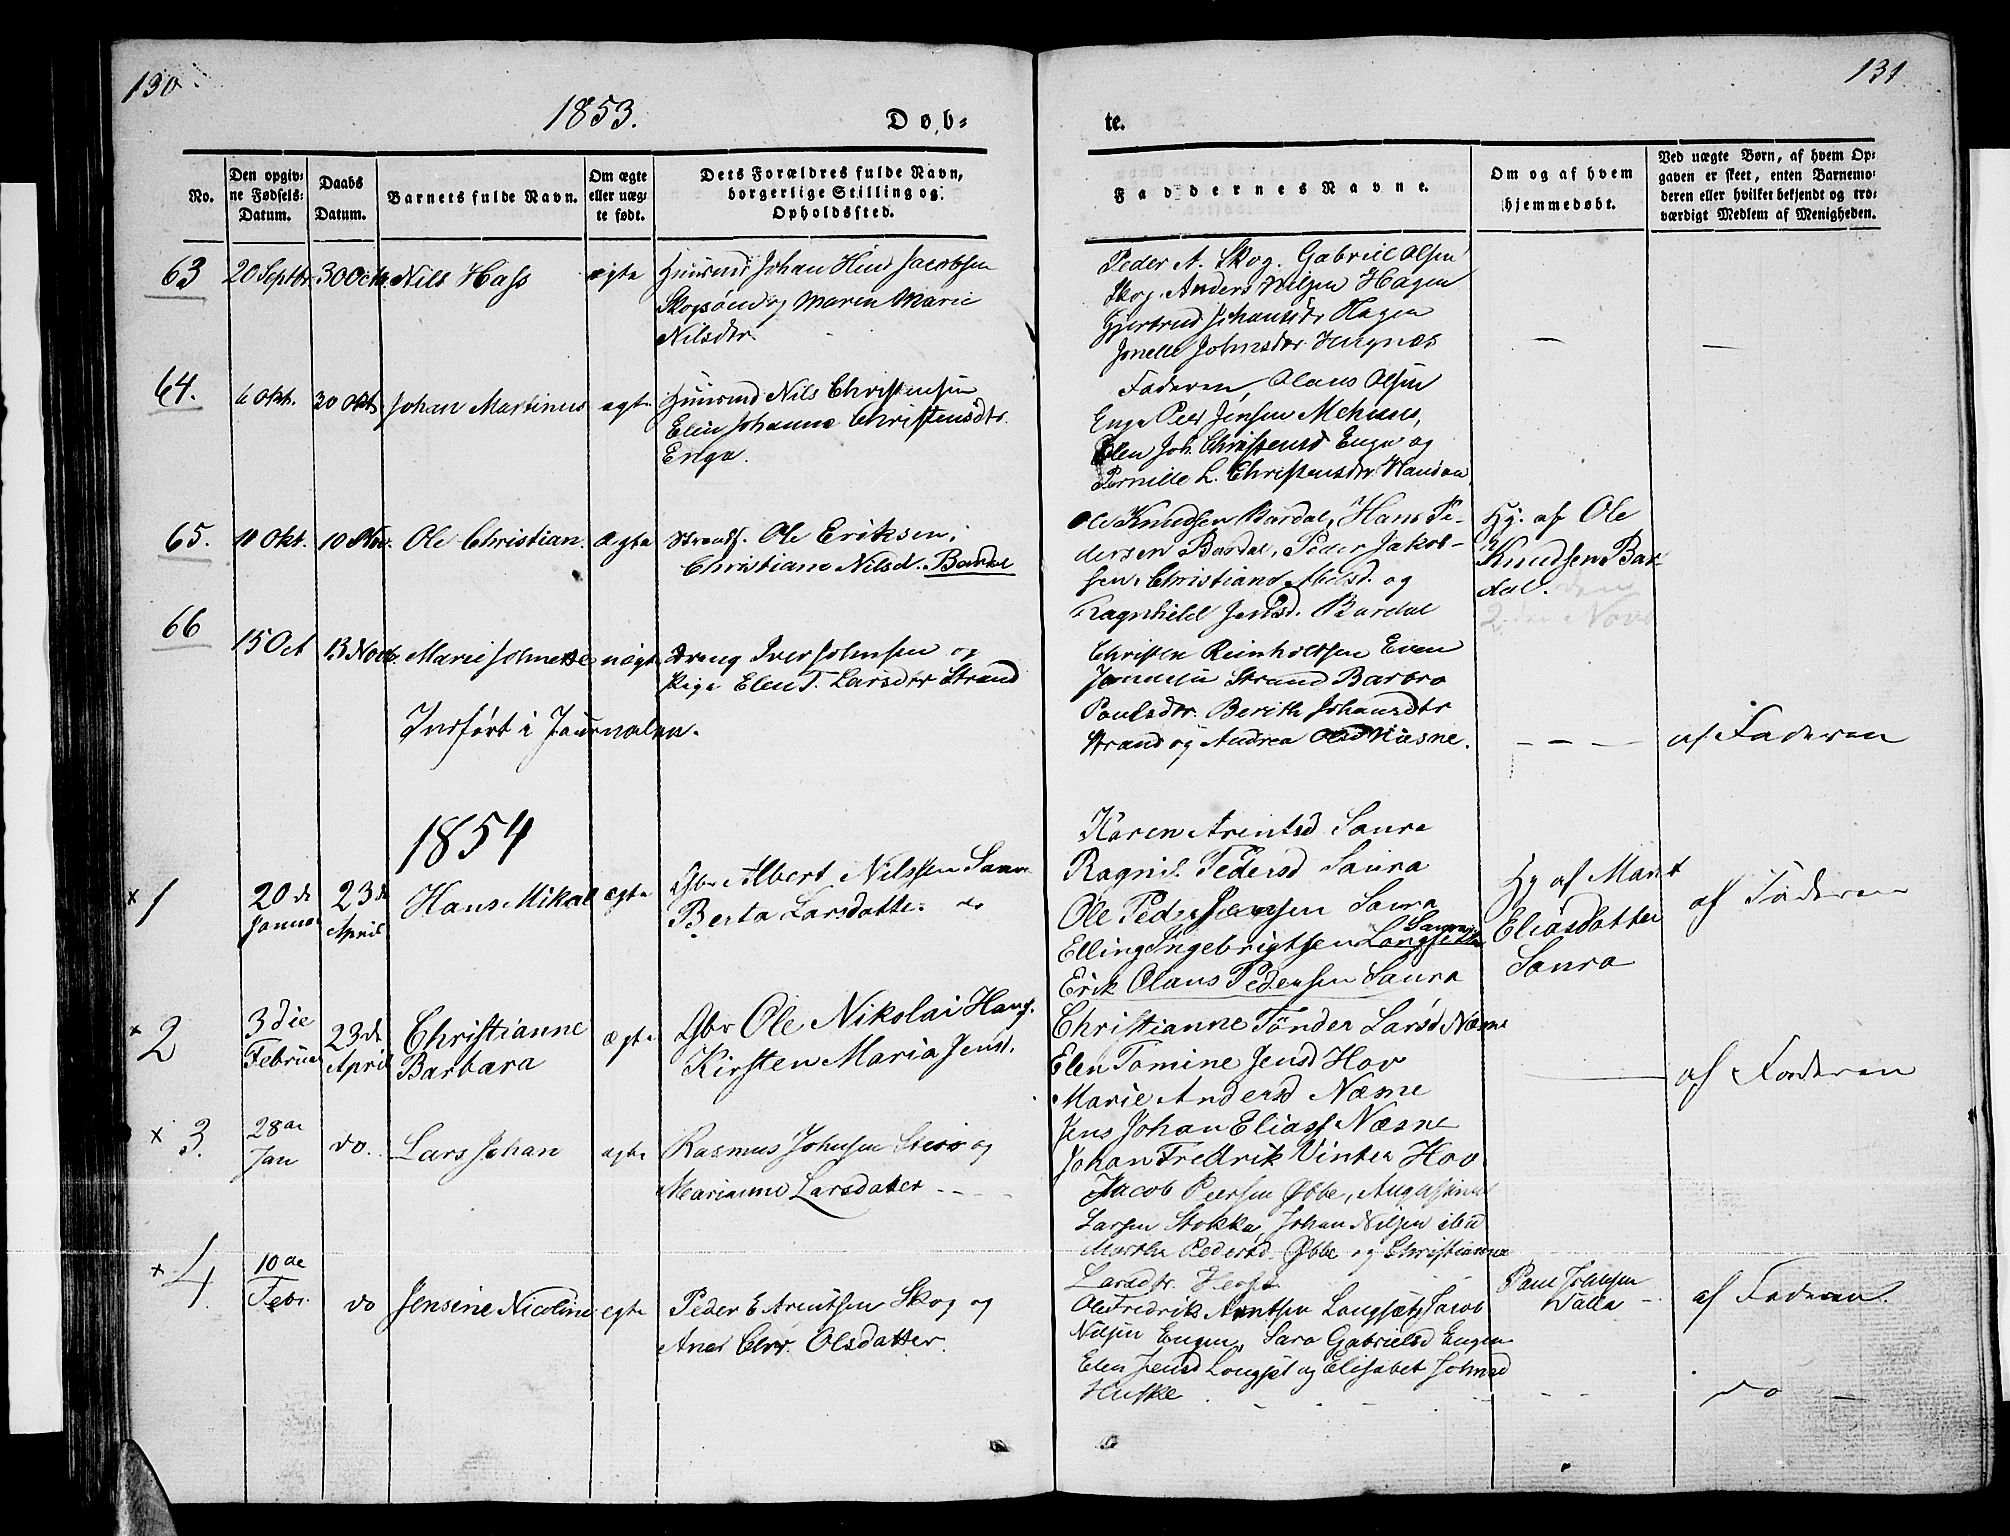 130
1853.
Døb-
No.
Den opgiv-
ne Fødsels-
Datum.
Daabs
Datum.
Barnets fulde Navn.
Om ægte
eller uæg-
te født.
Dets Forældres fulde Navn,
borgerlige Stilling og
Opholdssted.
63 20 Septbr. 30 Octb. Nils Hass ægte Huusmd Johan Hind Jacobsen
Skogsøen og Maren Marie
Nilsdtr.
64. 6 Okt. 30 Okt. Johan Martinus ægte Huusmd Nils Christensen
Elen Johanna Christensdtr.
Enga.
65. 11 Okt. 10 Nov. Ole Christian. Ægte Strands. Ole Eriksen,
Christiane Nilsd. Bardal
66 15 Oct 13 Novb. Marie Johnette uægte Dreng Iver Johnsen og
Pige Elen T. Larsdtr Strand
Indført i Journalen.
1854
× 1 20 de Januar 23 de April Hans Mikal ægte Gbr Albert Nilssen Saura
Berta Larsdatter do
× 2 3die Februar 23de April Christianne Barbara ægte Gbr Ole Nikolai Hans.
Kirsten Maria Jensd.
× 3. 28 de Jan do. Lars Johan ægte Rasmus Johnsen Stoxø og
Marianne Larsdatter - - -
× 4 10 de Febr. do Jensine Nicoline ægte Peder E Arentsen Skog og
Ane Chr. Olsdatter.
131
te.
Faddernes Navne.
Om og af hvem
hjemmedøbt.
Ved uægte Børn, af hvem Op-
gaven er skeet, enten Barnemo-
deren eller hvilket bekjendt og tro-
værdigt Medlem af Menigheden.
Peder A. Skog. Gabriel Olsen
Skog. Anders Nilsen Hagen
Gjertrud Johansdr Hagen
Jonelle Johnsdr. Hugnæs — —
Faderen, Olaus Olsen
Enga Peer Jensen Mehuus,
Elen Joh. Christensd Enga og
Pernille L. Christensdtr. Handnæ
Ole Knudsen Bardal, Hans Pe-
dersen Bardal, Peder Jakob-
sen, Christiana Nilsd. og
Ragnhild Jensd. Bardal
Hj. af Ole
Knudsen Bar-
dal. den
2 den Novb
Christen Reinholtsen Even
Jonassen Strand Barbro
Paulsdtr. Berith Johansdtr
Strand og Andrea Olsd Næsne. - - - af Faderen
Karen Arentsd Saura
Ragnil Pedersd Saura
Ole Peder Jensen Saura
Elling Ingebrigtsen Langsetter Saura
Erik Olaus Pedersen Saura
Hj af Marit
Eliasdatter
Saura
af Faderen
Christianne Tønder Larsd Næsne
Elen Tomine Jensd Hov
Marie Andersd Næsne
Jens Johan Eliass Næsne
Johan Fredrik Vinter Hov
— af Faderen
Jacob Peersen Øbbe, Augustinus
Larsen Stokka, Johan Nilsen ibid
Martha Pedersd Øbbe og Christianna
Larsdtr.
Paul Johnsen
Valla -
af Faderen.
Ole Fredrik Arentsen Langset, Jacob
Nilsen Engen, Sara Gabrielsd Engen
Elen Jensd Langset og Elisabet Johnsd
Huske - - do —